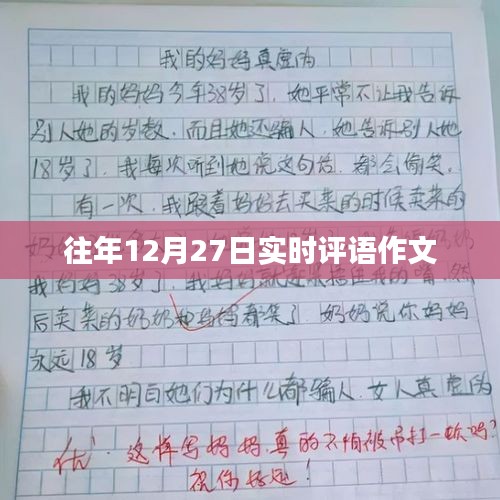 我的妈妈真虚伪
我的妈妈今年38岁了，她平常不让我告诉
别人她的岁数，而且她还骗人，她告诉别人她
18岁了，我每次听到她说这句话，都会偷笑。
有一次，我跟着妈妈去买菜的时候卖菜的
往年12月27日实时评语作文
我妈妈38岁，我妈妈就赶紧捂住我的嘴，然
后卖菜的奶奶和妈妈都笑了，奶奶说你妈妈
永远18岁
我不明白她们为什么都骗人，女人真虚伪
优·这样写妈妈，真的不怕被吊打一顿吗？
祝你好运！